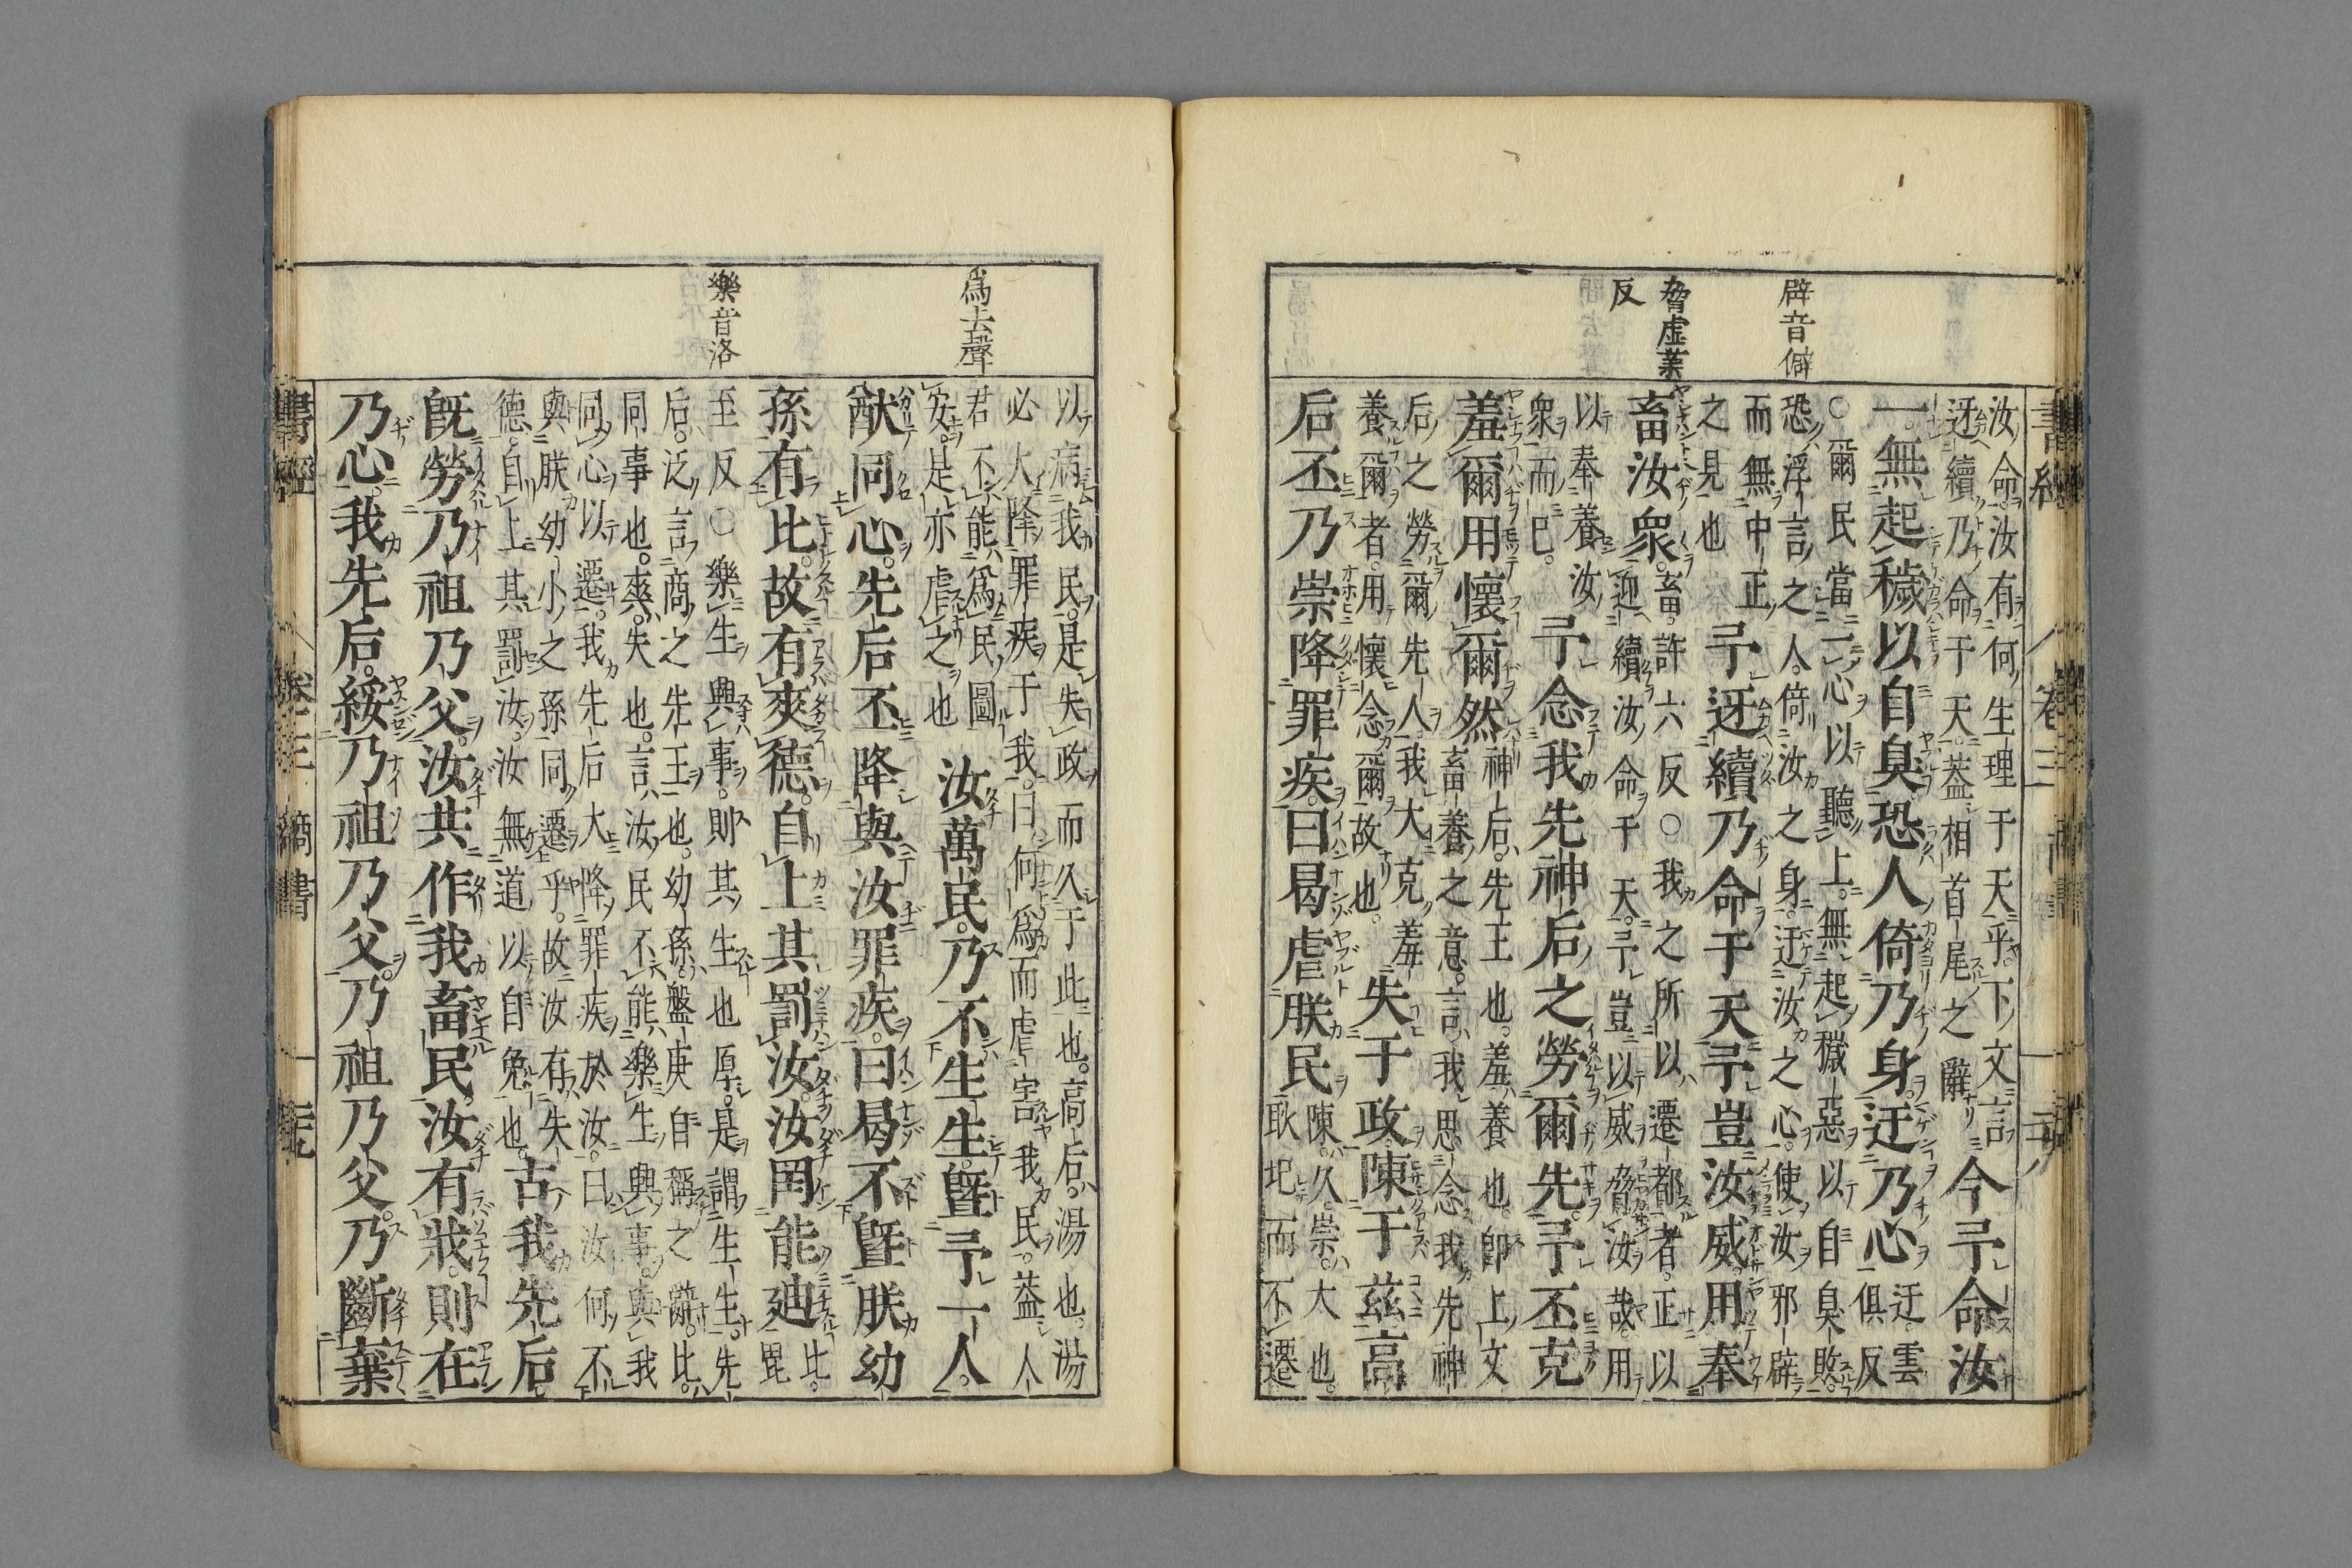 書經　卷三　商書
辟音僻
脅虛業
反
汝命。汝有何生理于天乎。下文言
迓續乃命于天。蓋相首尾之辭
今予命汝
一。無起穢以自臭。恐人倚乃身。迂乃心。
迂。雲
俱反
○爾民當一心以聽上。無起穢惡以自臭敗。
恐浮言之人。倚汝之身。迂汝之心。使汝邪辟
而無中正
之見也
予迓續乃命于天。予豈汝威。用奉
畜汝衆。
畜。許六反○我之所以遷都者。正以
迎續汝命于天。予豈以威脅汝哉。用
以奉養汝
衆而已。
予念我先神后之勞爾先。予丕克
羞爾用懷爾然
神后。先王也。羞養也。卽上文
畜養之意。言我思念我先神
后之勞爾先人。我大克羞
養爾者。用懷念爾故也。
失于政。陳于茲。高
后丕乃崇降罪疾。曰曷虐朕民
陳。久。崇。大也。
耿圮而不遷
以病我民。是失政而久于此也。高后。湯也。湯
必大降罪疾于我。曰何爲而虐害我民。蓋人
君不能爲民圖
安。是亦虐之也
爲去聲
汝萬民。乃不生生。曁予一人。
猷同心。先后丕降與汝罪疾。曰曷不曁朕幼
孫有比。故有爽德。自上其罰汝。汝罔能迪
比。毘
至反○樂生興事。則其生也厚。是謂生生。先
后。泛言商之先王也。幼孫。盤庚自稱之辭。比。
樂音洛
同事也。爽。失也。言汝民不能樂生興事。與我
同心以遷。我先后大降罪疾於汝。曰汝何不
與朕幼小之孫同遷乎。故汝有失
德。自上其罰汝。汝無道以自免也。
古我先后
旣勞乃祖乃父。汝共作我畜民。汝有戕。則在
乃心。我先后。綏乃祖乃父。乃祖乃父。乃斷棄
書經　卷三　商書